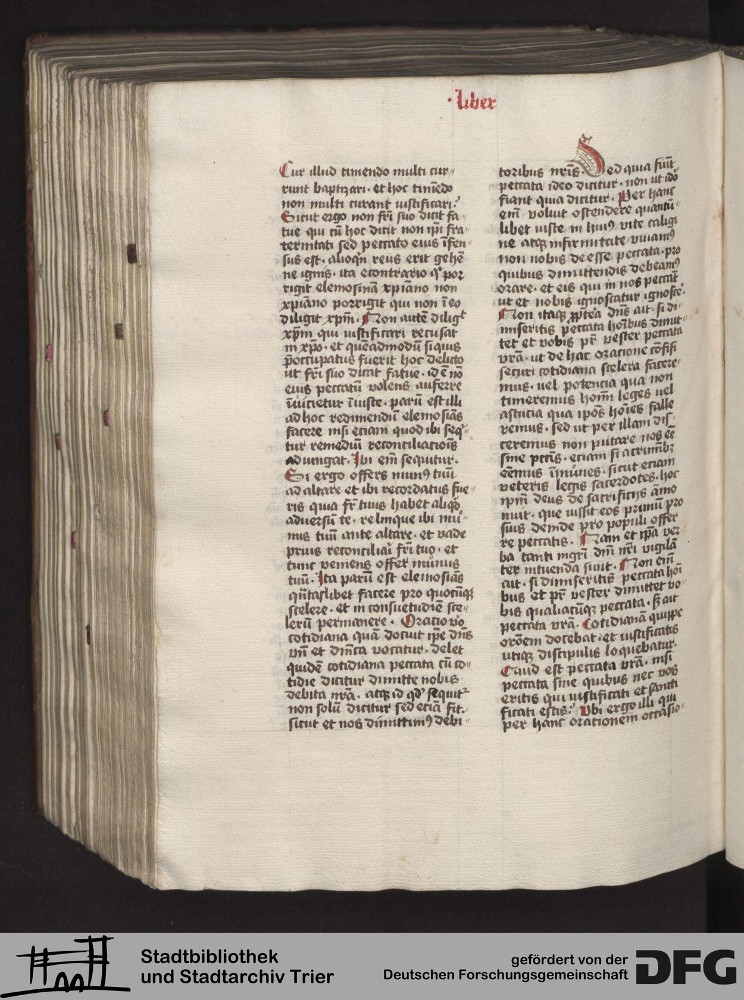 · liber
Cur illud timendo multi cur-
runt baptizari · et hoc timēdo
non multi curant iustificari?
Sicut ergo non fr̄i suo dicit fa-
tue qui cū hoc dicit non ip̄i fra-
ternitati sed peccato eius īfen-
sus est · alioqn̄ reus erit gehē-
ne ignis · ita econtrario qͥ por-
rigit elemosinā xp̄iano non
xp̄iano porrigit qui non ī eo
diligit xp̄m · Non autē diligt
xp̄m qui iustificari recusat
in xp̄o · et quēadmodū si quis
p̄occupatus fuerit hoc delicto
ut fr̄i suo dicat fatue · id ē nō
eius peccatū volens auferre
īuicietur īiuste · parū est illi
ad hoc redimendū elemosīas
facere nisi eciam quod ibi seqͥ-
tur remediū reconciliacioīs
adiungat · Ibi em̄ sequitur ·
Si ergo offers munꝰ tuū
ad altare et ibi recordatus fue-
ris quia fr̄ tuus habet aliqͥd
aduersū te · relinque ibi mu-
nus tuū ante altare · et vade
prius reconciliari fr̄i tuo · et
tunc veniens offer munus
tuū · Ita parū est elemosīas
qn̄taslibet facere pro quocūqꝫ
scelere · et in consuetudīe sce-
lerū permanere · Oracio vͦ
cotidiana quā docuit ip̄e dn̄s
vn̄ et dn̄ica vocatur · delet
quidē cotidiana peccata cū co-
tidie dicitur dimitte nobis
debita nr̄a · atqꝫ id qd̓ sequitͬ
non solū dicitur sed eciā fit ·
sicut et nos dimittimꝰ debi-
toribus nr̄is · Sed quia fiūt
peccata ideo dicitur · non ut iđo
fiant quia dicitur · Per hanc
em̄ voluit ostendere quantū-
libet iuste in huiꝰ vite caligi-
ne atqꝫ infirmitate viuamꝰ
non nobis deesse peccata · pro
quibus dimittendis debeamꝰ
orare · et eis qui in nos peccāt
ut et nobis ignoscatur ignosce͛
Non itaqꝫ p̱ptea dn̄s ait · si di-
miseritis peccata hoībus dimit-
tet et vobis pr̄ vester peccata
vr̄a · ut de hac oracione cōfisi
securi cotidiana scelera facere-
mus · uel potencia qua non
timeremus homī leges uel
astucia qua ip̄os hoīes falle-
remus · sed ut per illam dis-
ceremus non putare nos eē
sine pctīs · eciam si a crimībꝫ
eēmus īmunes · sicut eciam
veteris legis sacerdotes · hoc
ip̄m deus de sacrificijs āmo-
nuit · que iussit eos primū pro
suis deinde pro populi offer-
re peccatis · Nam et ip̄a ver-
ba tanti mgr̄i dn̄i nr̄i vigilā-
ter intuenda sunt · Non em̄
ait · si dimiseritis peccata hoī-
bus et pr̄ vester dimittet vo-
bis qualiacūqꝫ peccata · sꝫ ait
peccata vr̄a · Cotidianā quippe
orōem docebat · et iustificatis
utiqꝫ discipulis loquebatur ·
Quid est peccata vr̄a · nisi
peccata sine quibus nec vos
eritis qui iustificati et sancti-
ficati estis? Ubi ergo illi qui
per hanc orationem occasio-
Stadtbibliothek
und Stadtarchiv Trier
gefördert von der
Deutschen Forschungsgemeinschaft
DFG